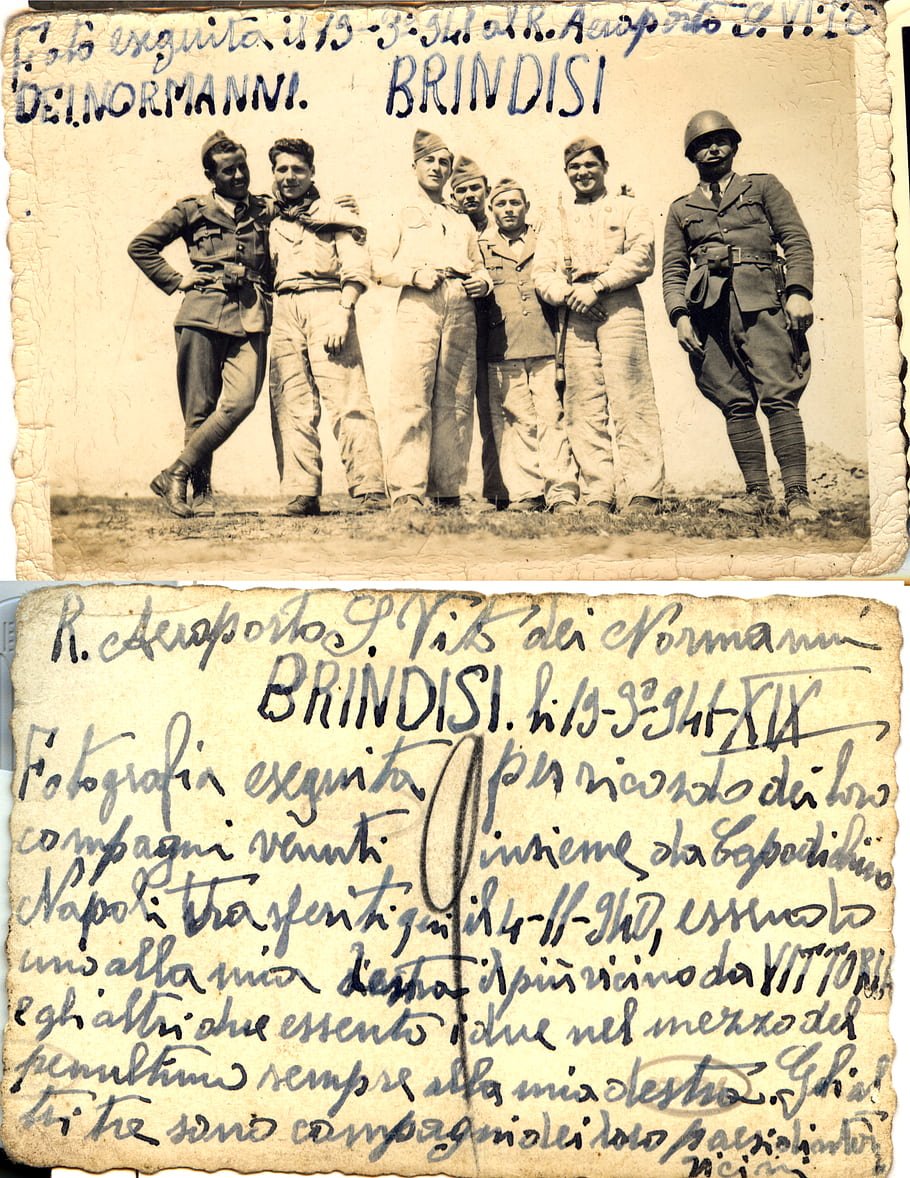 Foto eseguita il 19-3º-941 al R. Aeroporto S. VITO
DEI NORMANNI. BRINDISI
R. Aeroporto S. Vito dei Normanni
BRINDISI. li 19-3º-941-XIX
Fotografia eseguita per ricordo dei loro
compagni venuti insieme da Capodichino
Napoli trasferiti qui il 4-11-940, essendo
uno alla mia destra il più vicino da VITTORio
e gli altri due essento i due nel mezzo del
penultimo sempre alla mia destra. Gli al
tri tre sono compagni dei loro paesi
vicini